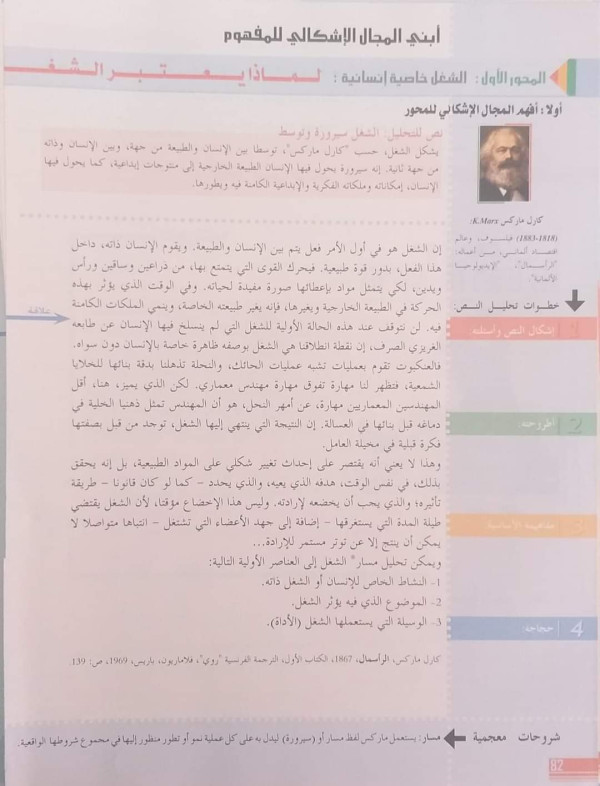 أبني المجال الإشكالي للمفهوم
المحور الأول: الشغل خاصية إنسانية: لماذا يعتبر الشغـ
أولا: أفهم المجال الإشكالي للمحور
نص للتحليل: الشغل سيرورة وتوسط
يشكل الشغل، حسب "كارل ماركس"، توسطا بين الإنسان والطبيعة من جهة، وبين الإنسان وذاته
من جهة ثانية. إنه سيرورة يحول فيها الإنسان الطبيعة الخارجية إلى منتوجات إبداعية، كما يحول فيها
الإنسان، إمكاناته وملكاته الفكرية والإبداعية الكامنة فيه ويطورها.
كارل ماركس K.Marx:
(1818-1883) فيلسوف، وعالم
اقتصاد ألماني، من أعماله:
"الرأسمال"، "الإيديولوجيا
الألمانية".
خطوات تحليل النص:
1 إشكال النص وأسئلته
2 أطروحته:
3 مفاهيمه الأساسية:
4 حجاجه:
علاقة
إن الشغل هو في أول الأمر فعل يتم بين الإنسان والطبيعة. ويقوم الإنسان ذاته، داخل
هذا الفعل، بدور قوة طبيعية. فيحرك القوى التي يتمتع بها، من ذراعين وساقين ورأس
ويدين، لكي يتمثل مواد بإعطائها صورة مفيدة لحياته. وفي الوقت الذي يؤثر بهذه
الحركة في الطبيعة الخارجية ويغيرها، فإنه يغير طبيعته الخاصة، وينمي الملكات الكامنة
فيه. لن نتوقف عند هذه الحالة الأولية للشغل التي لم ينسلخ فيها الإنسان عن طابعه
الغريزي الصرف، إن نقطة انطلاقنا هي الشغل بوصفه ظاهرة خاصة بالإنسان دون سواه.
فالعنكبوت تقوم بعمليات تشبه عمليات الحائك، والنحلة تذهلنا بدقة بنائها للخلايا
الشمعية، فتظهر لنا مهارة تفوق مهارة مهندس معماري. لكن الذي يميز، هنا، أقل
المهندسين المعماريين مهارة، عن أمهر النحل، هو أن المهندس تمثل ذهنيا الخلية في
دماغه قبل بنائها في العسالة. إن النتيجة التي ينتهي إليها الشغل، توجد من قبل بصفتها
فكرة قبلية في مخيلة العامل.
وهذا لا يعني أنه يقتصر على إحداث تغيير شكلي على المواد الطبيعية، بل إنه يحقق
بذلك، في نفس الوقت، هدفه الذي يعيه، والذي يحدد - كما لو كان قانونا - طريقة
تأثيره؛ والذي يجب أن يخضعه لإرادته. وليس هذا الإخضاع مؤقتا، لأن الشغل يقتضي
طيلة المدة التي يستغرقها - إضافة إلى جهد الأعضاء التي تشتغل - انتباها متواصلا لا
يمكن أن ينتج إلا عن توتر مستمر للإرادة...
ويمكن تحليل مسار* الشغل إلى العناصر الأولية التالية:
1- النشاط الخاص للإنسان أو الشغل ذاته.
2- الموضوع الذي فيه يؤثر الشغل.
3- الوسيلة التي يستعملها الشغل (الأداة).
كارل ماركس، الرأسمال، 1867، الكتاب الأول، الترجمة الفرنسية "روي"، فلاماريون، باريس، 1969، ص: 139
شروحات معجمية
مسار: يستعمل ماركس لفظ مسار أو (سيرورة) ليدل به على كل عملية نمو أو تطور منظور إليها في مجموع شروطها الواقعية.
82